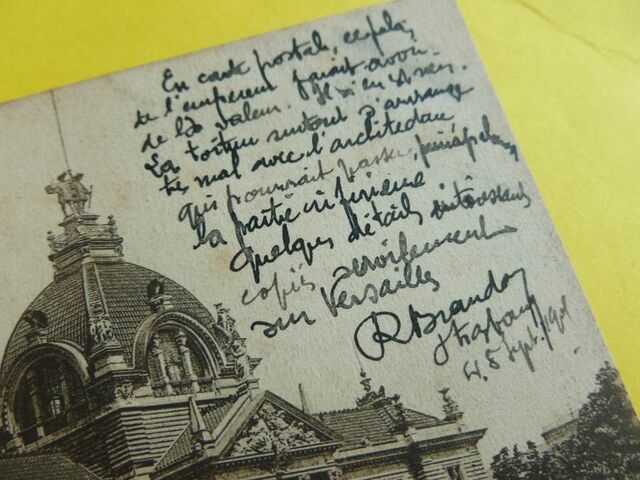 En carte postale, ce palais
de l'empereur parait avoir
de la valeur. Il n'en est rien.
La toiture surtout s'arrange
très mal avec l'architecture
qui pourrait passer, principalement
la partie inférieure
quelques détails intéressants
copiés servilement
sur Versailles
Strasbourg
5 Sept. 1901